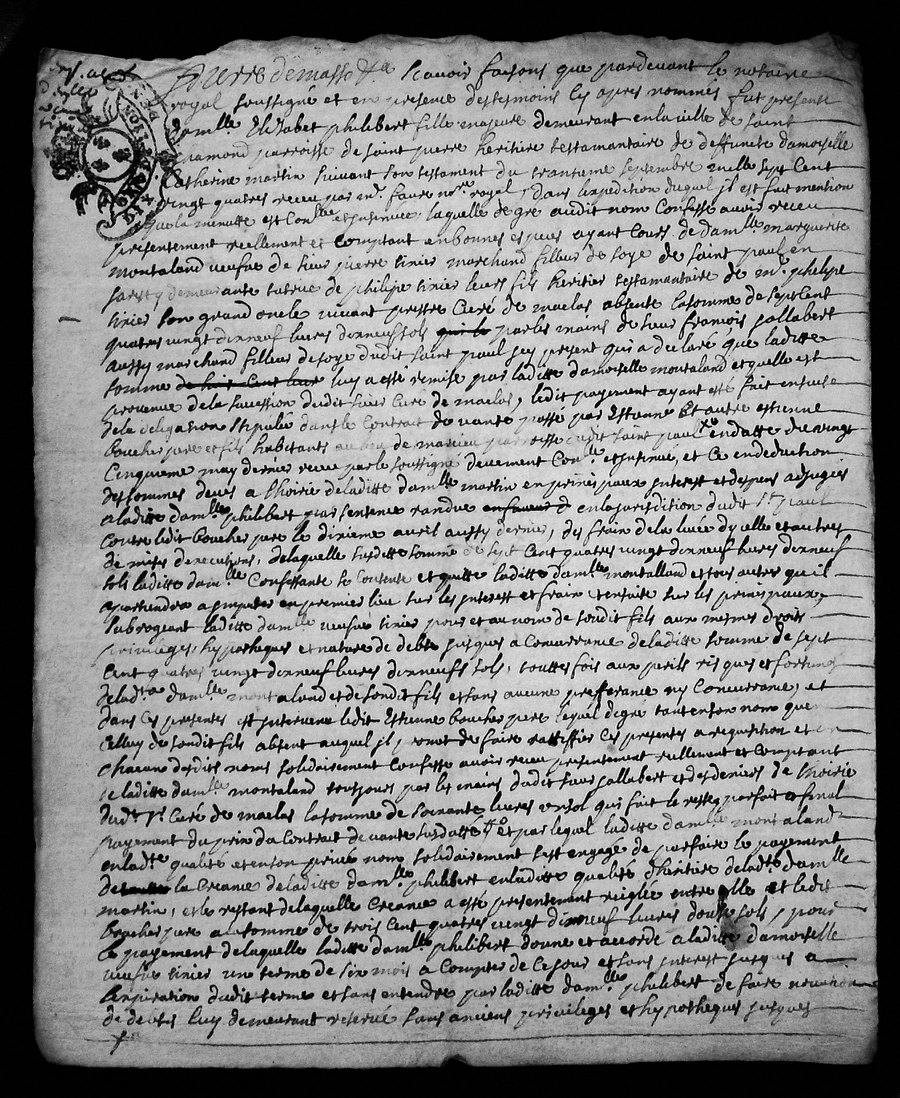 Pierre demasso &a scavoir faisons que pardevant le notaire
royal soussigné et en presence des tesmoins cy apres nommés fut presente
damlle Elizabet philibert fille majeure demeurant en la ville de saint
chamond parroisse de saint pierre heritiere testamentaire de deffuncte damoiselle
Catherine martin suivant son testament du trantieme septembre mille sept cent
vingt quatre receu par me faure nore royal, dans lexpedition duquel il est fait mention
que la minutte est conllee et insinuee laquelle de gre audit nom confesse avoir receu
presentement reellement et comptant en bonnes especes ayant cours de damlle marguerite
montaland veufve de sieur pierre sivier marchand filleur de soye de saint paul en
jarest y demeurante tutrice de philipe sivier leurs fils heritier testamentaire de mre philipe
sivier son grand oncle vivant prestre curé de maclas absente la somme de sept cent
quatre vingt dixneuf livres dixneuf sols par les mains de sieur françois gallabert
aussy marchand filleur de soye dudit saint paul icy present qui a declaré que laditte
somme de huit cent livre luy a esté remise par laditte damoiselle montaland et quelle est
provenue de la succession dudit sieur curé de maclas, ledit payement ayant esté fait en suite
de la delegation stipulée dans le contrat de vante passé par Estienne et autre estienne
boucher pere et fils habitants au lieu de parroisse dudit saint paul en datte du vingt
cinquieme may dernier receu par le soussigné deuement conllé et insinué, et ce en deduction
des sommes deues a lhoirie de laditte damlle martin en principaux interest et depens adjugés
a laditte damlle philibert par sentence randue en la jurisdition dudit st paul
contre ledit boucher pere le dixieme avril aussy dernier, des frais de la levée dycelle et autres
de mises dexecutions, de laquelle susditte somme de sept cent quatre vingt dixneuf livres dixneuf
sols laditte damlle confessante se contente et quitte laditte damlle montalland et tous autres qu'il
apartiendra a imputer en premier lieu sur les interest et fraix et ensuite sur les principaux,
subrogeant laditte damlle veufve sivier pour et au nom de sondit fils aux mesmes droits
privileges, hypotheques et nature de debte jusques a concurrance de laditte somme de sept
cent quatre vingt dixneuf livres dixneufs sols, touttes fois aux perils risques et fortunes
de ladte damlle montaland et de sondit fils et sans aucune prefferance ny concurrance, et
dans ces presentes est intervenu ledit Estienne boucher pere lequel de gré tant en son nom que
celluy de sondit fils absent auquel il promet de faire rattiffier ces presentes a requisition et en
chacun desdits noms solidairement confesse avoir receu presentement reellement et comptant
de laditte damlle montaland toujours par les mains dudit sieur gallabert et des deniers de lhoirie
dudt sr curé de maclas la somme de soixante livres un sol qui fait le reste parfait et final
payement du prix du contrat de vante susdatté et par lequel laditte damlle montaland
en ladte qualité et en son privé nom solidairement sest engagé de parfaire le payement
de la creance de laditte damlle philibert en laditte qualité dheritiere de ladte damlle
martin, et le restant de laquelle creance a esté presentement reiglé entre elle et ledit
boucher pere a la somme de trois cent quatre vingt dixneuf livres douze sols, pour
le payement de laquelle laditte damlle philibert donne et accorde a laditte damoiselle
veufve sivier un terme de six mois a compter de ce jour et sans interest jusques a
lexpiration dudit terme et sans entendre par laditte damlle philibert de faire novation
de debtes luy demeurant reservé sans anciens privileges et hypotheques jusques